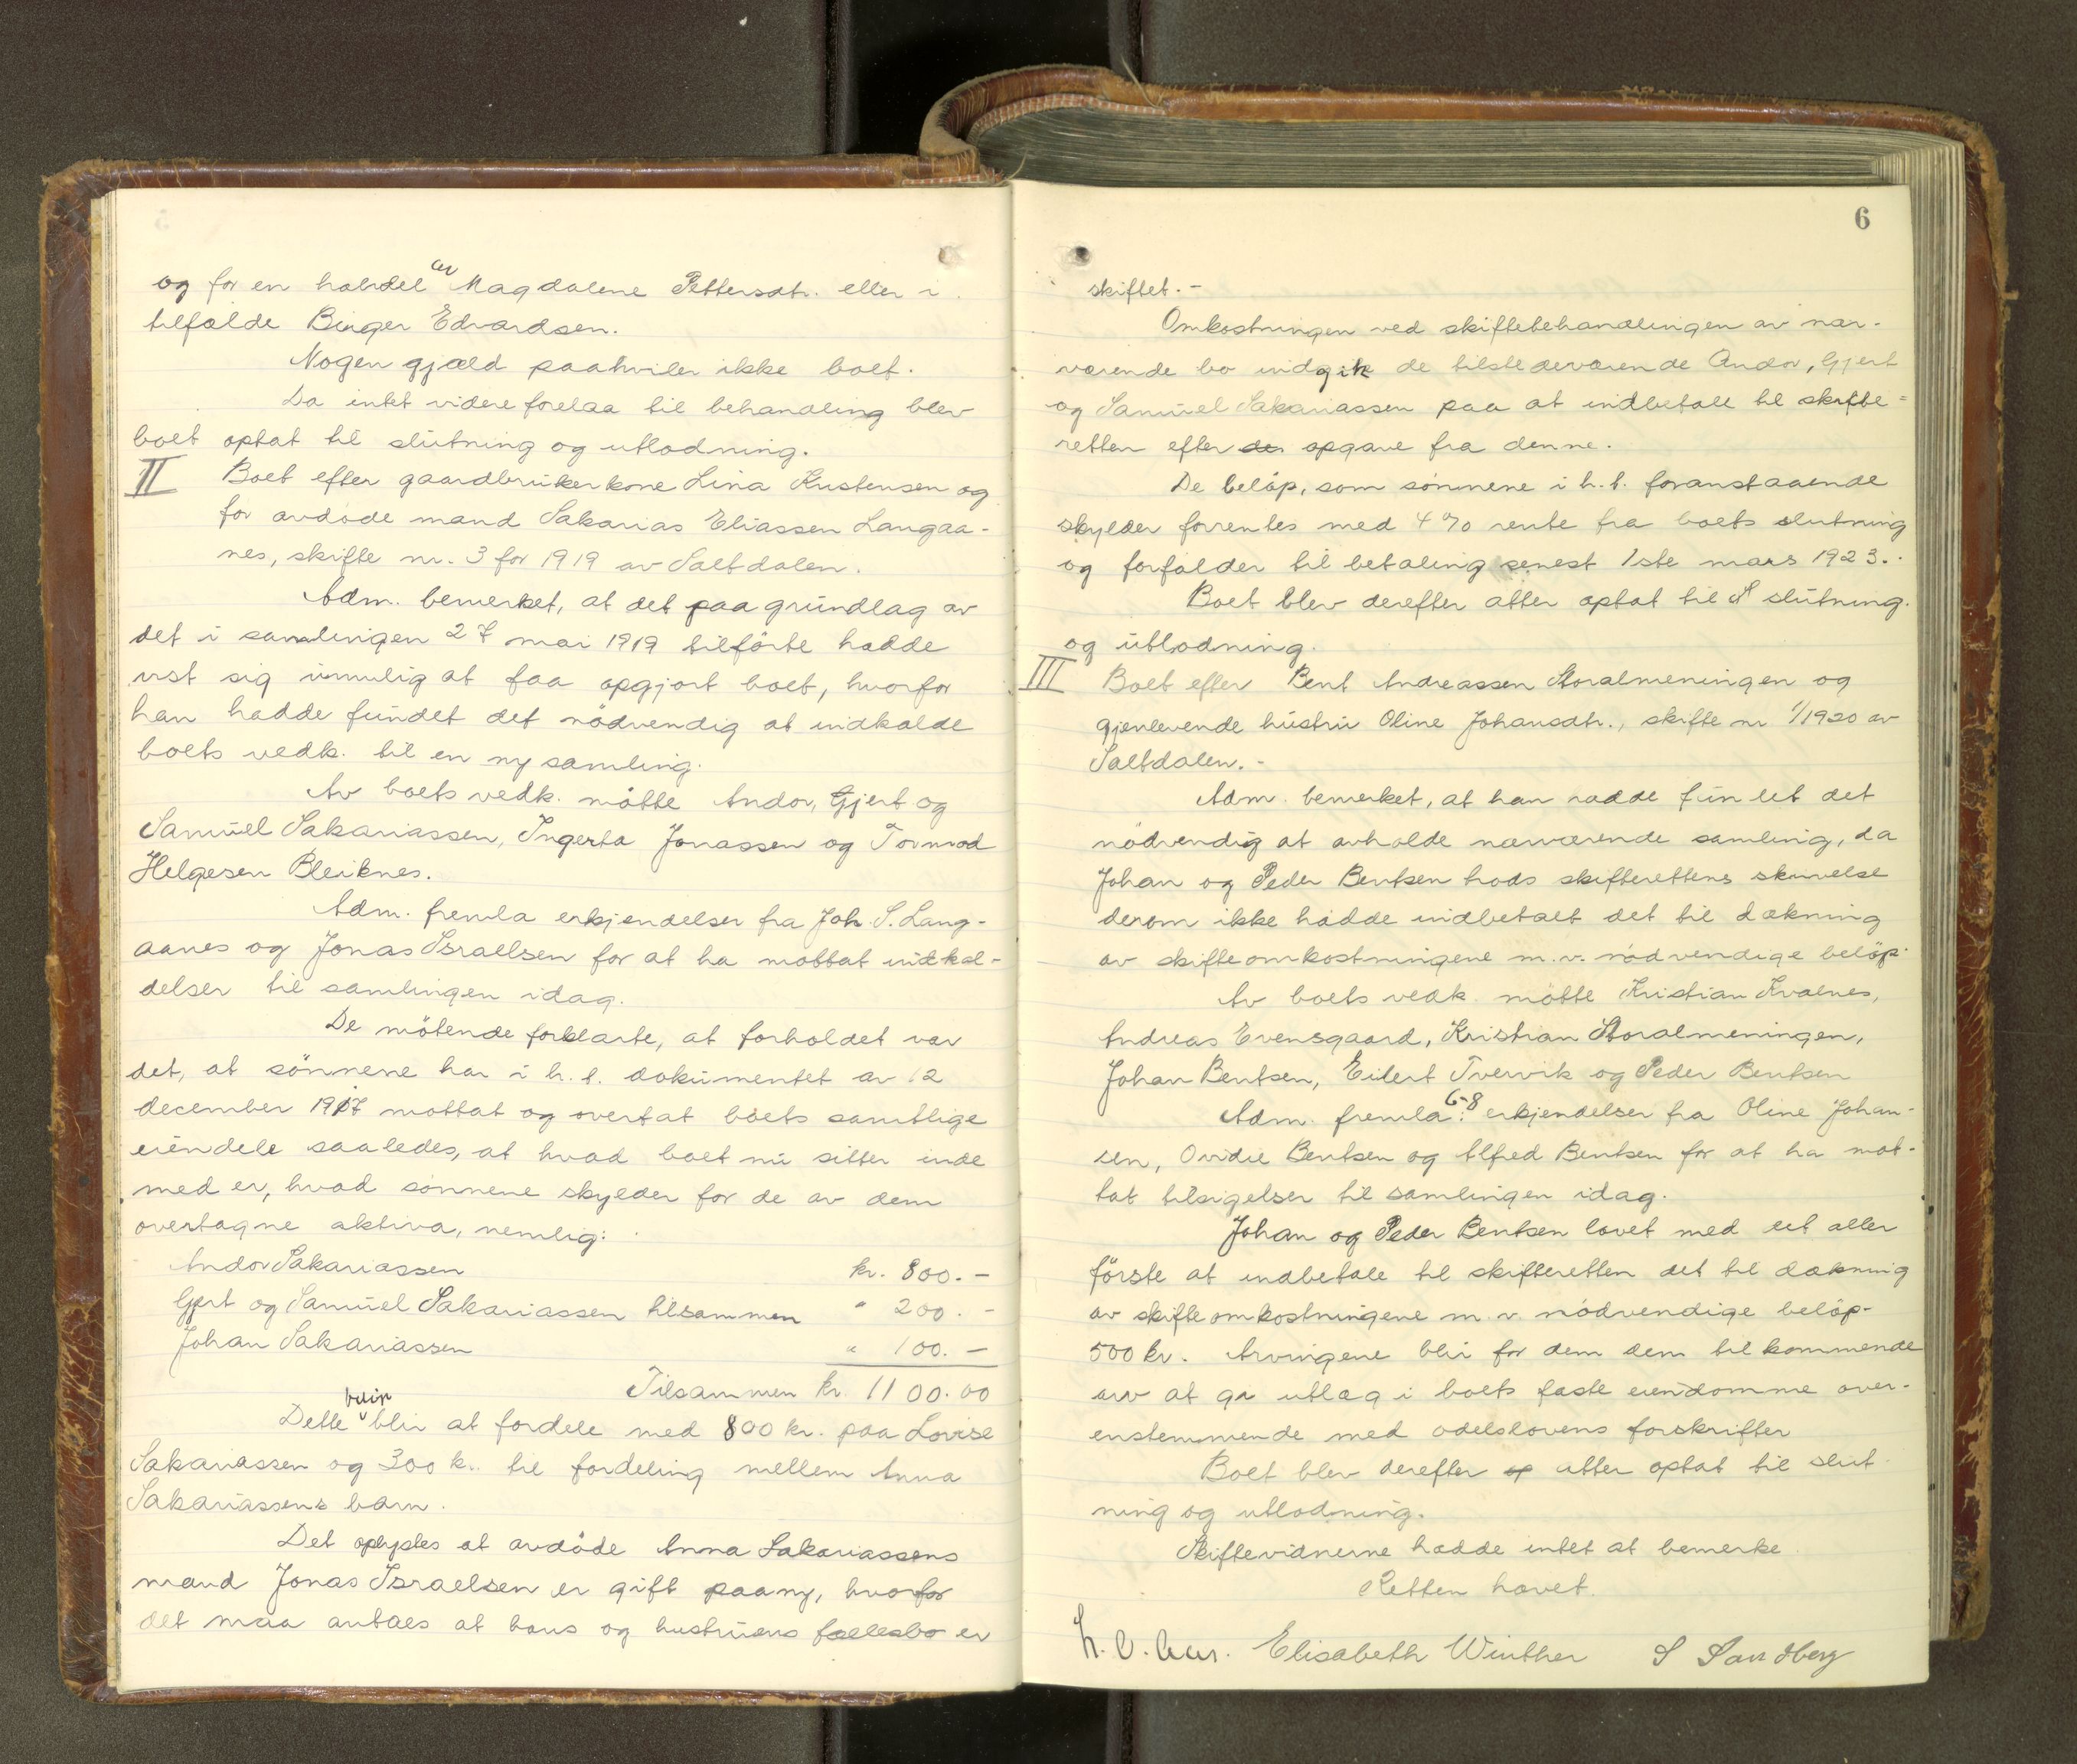 og for en halvdel av Magdalene Pettersdtr. eller i
tilfælde Birger Edvardsen.
Nogen gjæld paahviler ikke boet.
Da intet videre forelaa til behandling blev
boet optat til slutning og utlodning.
II Boet efter gaardbrukerkone Lina Kristensen og
før avdøde mand Sakarias Eliassen Langaa-
nes, skifte nr. 3 for 1919 av Saltdalen.
Adm. bemerket, at det paa grundlag av
det i samlingen 27 mai 1919 tilförte hadde
vist sig umulig at faa opgjort boet, hvorfor
han hadde fundet det nödvendig at indkalde
boets vedk. til en ny samling.
Av boets vedk. mötte Andor, Gjert og
Samuel Sakariassen, Ingerta Jonassen og Tormod
Helgesen Bleiknes.
Adm. fremla erkjendelser fra Joh. S. Lang-
aanes og Jonas Israelsen for at ha mottat indkal-
delser til samlingen idag.
De mötende forklarte, at forholdet var
det, at sönnene har i h.t. dokumentet av 12
december 1917 mottat og overtat boets samtlige
eiendele saaledes, at hvad boet nu sitter inde
med er, hvad sönnene skylder for de av dem
overtagne aktiva, nemlig:
Andor Sakariassen kr. 800.-
Gjert og Samuel Sakariassen tilsammen " 200.-
Johan Sakariassen " 100.-
Tilsammen kr. 1100.00
Dette blir at fordele med 800 kr. paa Lovise
Sakariassen og 300 k. til fordeling mellem Anna
Sakariassens barn.
Det oplystes at avdöde Anna Sakariassens
mand Jonas Israelsen er gift paany, hvorfor
det maa antaes at hans og hustruens fællesbo er
6
skiftet.-
Omkostningen ved skiftebehandlingen av nær-
værende bo indgik de tilstedeværende Andor, Gjert
og Samuel Sakariassen paa at indbetale til skifte=
retten efter de opgave fra denne.
De belöp, som sönnene i h.t. foranstaaende
skylder forrentes med 4 % rente fra boets slutning
og forfalder til betaling senest 1ste mars 1923.
Boet blev derefter atter optat til slutning
og utlodning.
III Boet efter Bent Andreassen Storalmeningen og
gjenlevende hustru Oline Johansdtr., skifte nr 1/1920 av
Saltdalen.-
Adm. bemerket, at han hadde fundet det
nödvendig at avholde nærværende samling, da
Johan og Peder Bentsen trods skifterettens skrivelse
derom ikke hadde indbetalt det til dækning
av skifteomkostningene m.v. nödvendige belöp.
Av boets vedk. mötte Kristian Kvalnes,
Andreas Evensgaard, Kristian Storalmeningen,
Johan Bentsen, Eilert Tvervik og Peder Bentsen
Adm. fremla 6-8 erkjendelser fra Oline Johan-
sen, Ovidie Bentsen og Alfred Bentsen for at ha mot-
tat tilsigelser til samlingen idag.
Johan og Peder Bentsen lovet med det aller
förste at indbetale til skifteretten det til dækning
av skifteomkostningene m.v. nödvendige belöp-
500 kr. Arvingene blir for dem dem tilkommende
arv at gi utlæg i boets faste eiendomme over-
enstemmende med odelslovens forskrifter
Boet blev derefter op atter optat til slut-
ning og utlodning.
Skiftevidnerne hadde intet at bemerke.
Retten hævet.
Elisabeth Winther S Sandberg